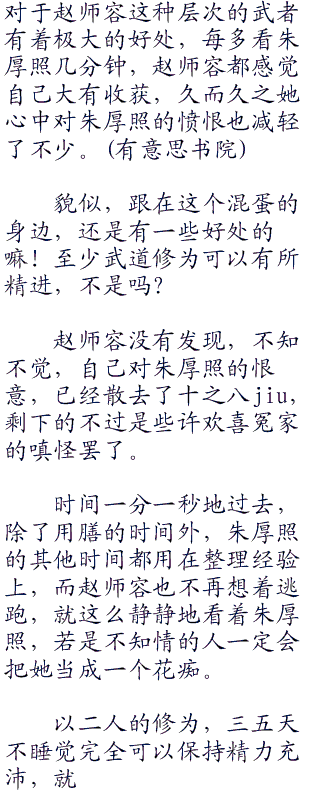 对于赵师容这种层次的武者
有着极大的好处，每多看朱
厚照几分钟，赵师容都感觉
自己大有收获，久而久之她
心中对朱厚照的愤恨也减轻
了不少。(有意思书院)
貌似，跟在这个混蛋的
身边，还是有一些好处的
嘛！至少武道修为可以有所
精进，不是吗？
赵师容没有发现，不知
不觉，自己对朱厚照的恨
意，已经散去了十之八jiu，
剩下的不过是些许欢喜冤家
的嗔怪罢了。
时间一分一秒地过去，
除了用膳的时间外，朱厚照
的其他时间都用在整理经验
上，而赵师容也不再想着逃
跑，就这么静静地看着朱厚
照，若是不知情的人一定会
把她当成一个花痴。
以二人的修为，三五天
不睡觉完全可以保持精力充
沛，就